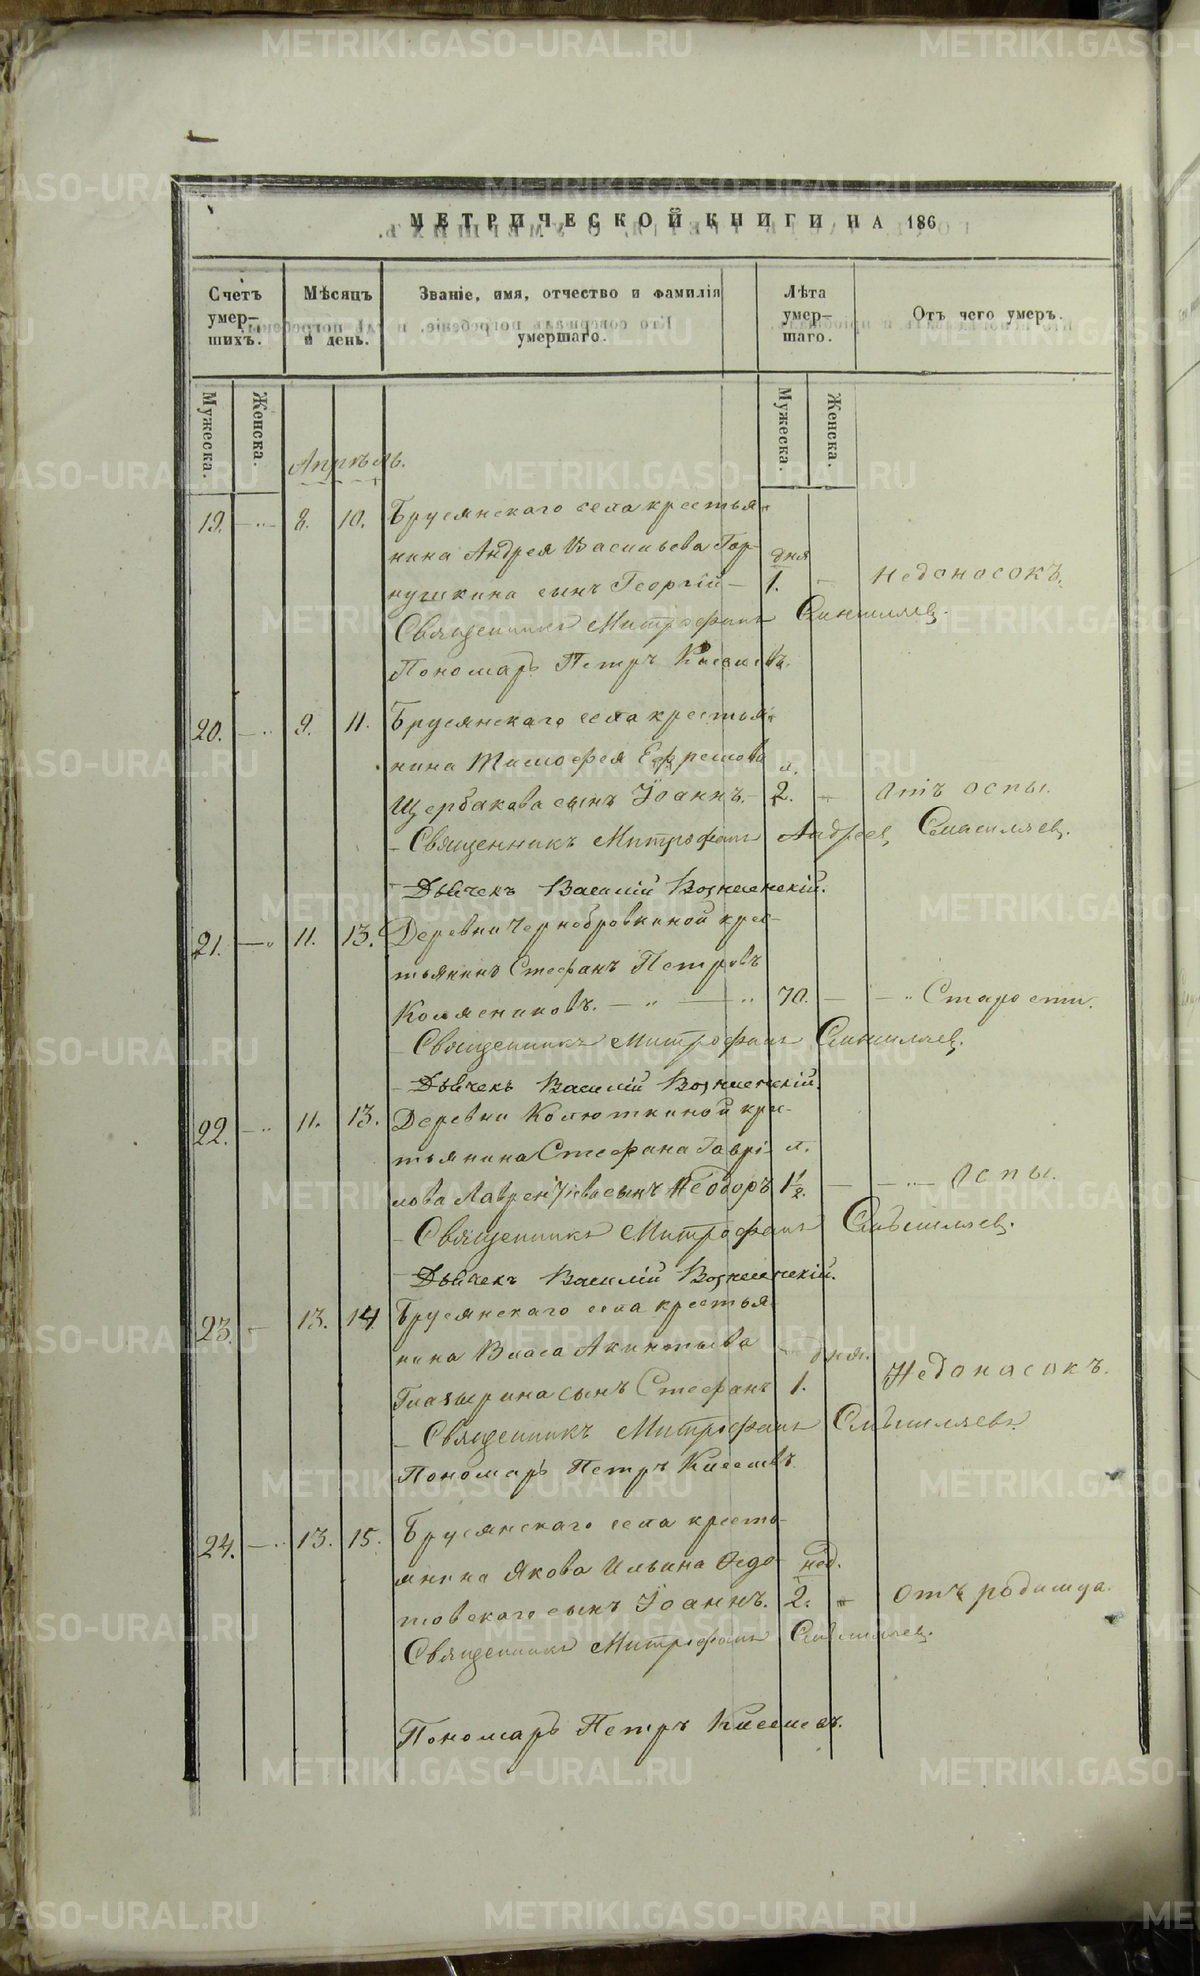 МЕТРИЧЕСКОЙ КНИГИ НА 186
Счетъ умер-шихъ.
Мѣсяцъ и день.
Званіе, имя, отчество и фамилія умершаго.
Лѣта умер-шаго.
Отъ чего умеръ.
Мужеска.
Женска.
Мужеска.
Женска.
Апрѣль.
19. 8. 10. Брусянскаго села крестья-
нина Андрея Васильева Гор- дня
нушкина сынъ Георгій 1. Недоносокъ.
Священникъ Митрофанъ
Пономарь Петръ Киселевъ.
20. 9. 11. Брусянскаго села крестья-
нина Тимофея Ефремова л.
Щербакова сынъ Іоаннъ. 2. Отъ оспы.
Священникъ Митрофанъ Андреев
Дьячекъ Василій Вознесенскій.
21. 11. 13. Деревни Чернобровкиной крес-
тьянинъ Стефанъ Петровъ
70. Старости.
Священникъ Митрофанъ
Дьячекъ Василій Вознесенскій.
22. 11. 13. Деревни Колюткиной кре-
тьянина Стефана Гаврі- л.
лова Лаврентіева сынъ Ѳеодоръ 1½. Оспы.
Священникъ Митрофанъ
Дьячекъ Василій Вознесенскій.
23. 13. 14 Брусянскаго села крестья-
нина Власа Акинтьева дня.
Глазырина сынъ Стефанъ 1. Недонасокъ.
Священникъ Митрофанъ
Пономарь Петръ Киселевъ
24. 13. 15. Брусянскаго села кресть-
янина Якова Ильина Федо- нед.
товскаго сынъ Іоаннъ. 2. Отъ родимца.
Священникъ Митрофанъ
Пономарь Петръ Киселевъ.
METRIKI.GASO-URAL.RU